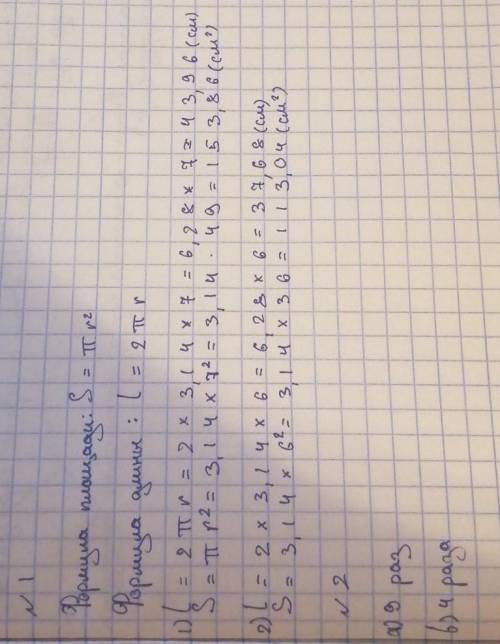 № 1
Формула площади: S = π r²
Формула длины : L = 2 π r
1) L = 2 π r = 2 x 3,14 x 7 = 6,28 x 7 = 43,96 (см)
S = π r² = 3,14 x 7² = 3,14 · 49 = 153,86 (см²)
2) L = 2 x 3,14 x 6 = 6,28 x 6 = 37,68 (см)
S = 3,14 x 6² = 3,14 x 36 = 113,04 (см²)
№ 2
а) 9 раз
b) 4 раза